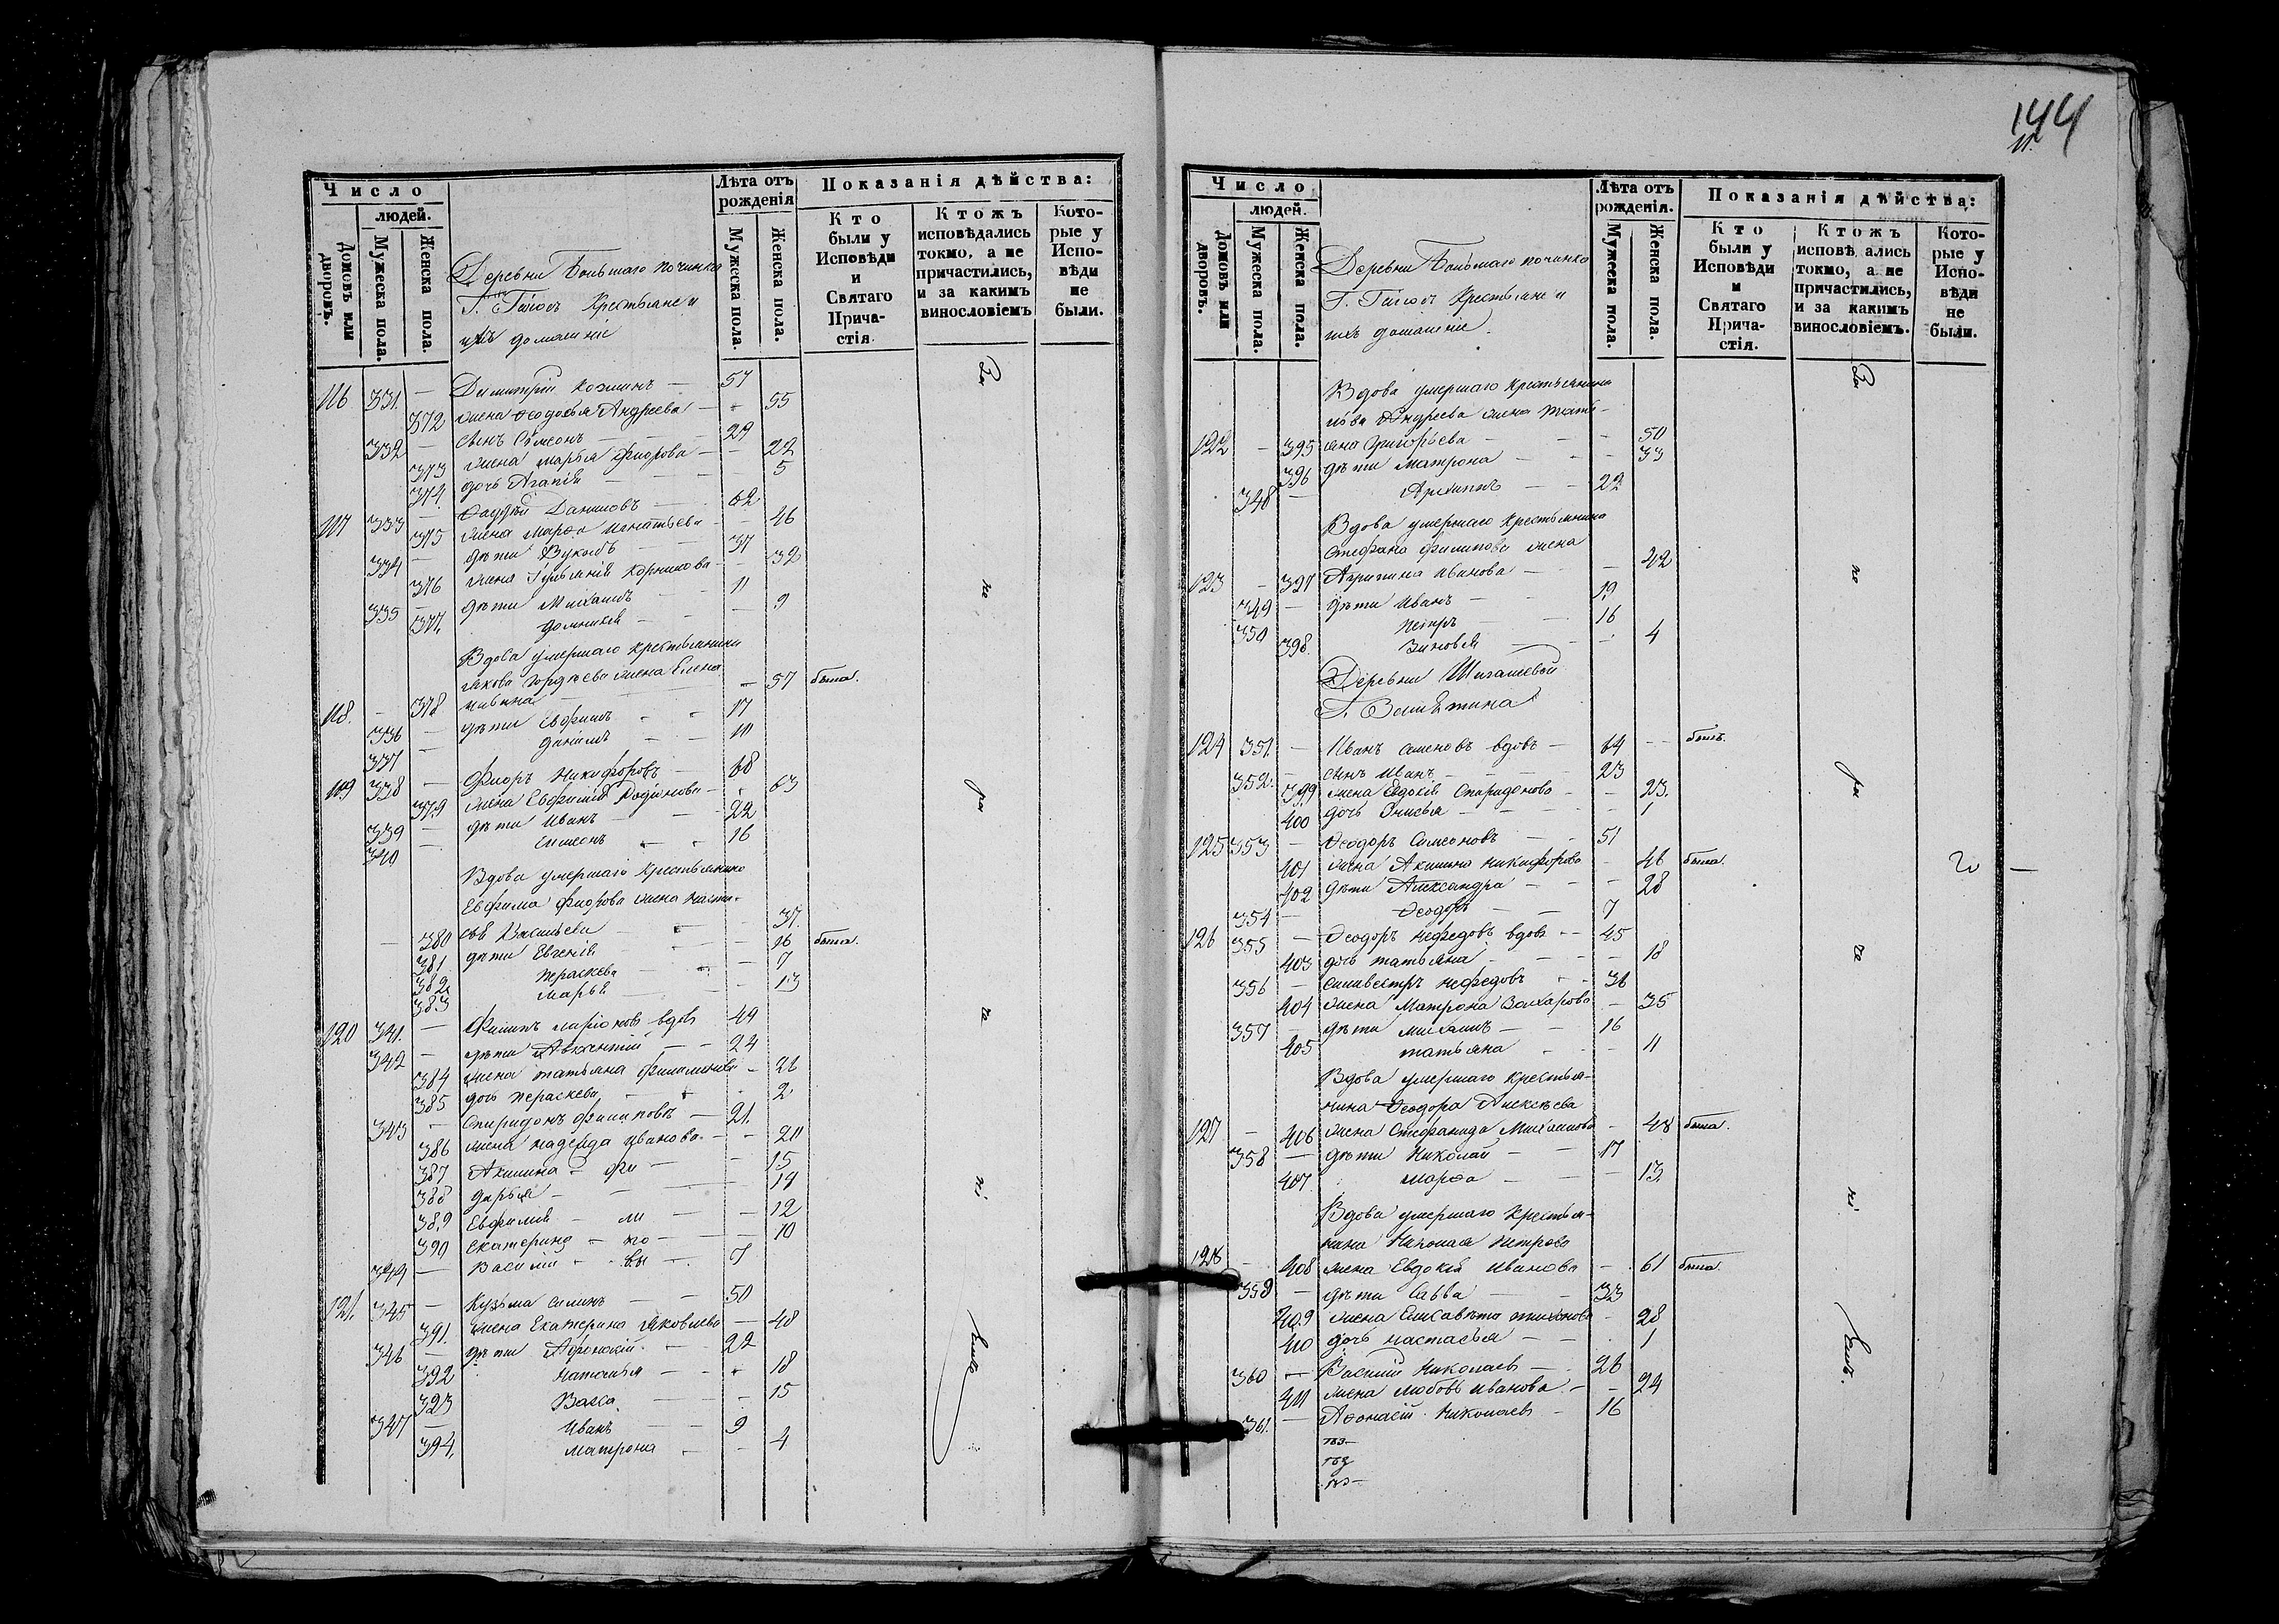 144
Число
людей.
Домовъ или дворовъ.
Мужеска пола.
Женска пола.
Деревни Большаго починка
Г. Крестьяне и
ихъ домашние
Лѣта отъ рожденія
Мужеска пола.
Женска пола.
Показанія дѣйства:
Кто были у Исповѣди и Святаго Причастія
Ктожъ исповѣдались токмо, а не причастились, и за какимъ винословіемъ
Которые у Исповѣди не были.
116 331 — Димитрій Козминъ — 57
372 жена Ѳеодосья Андреева — 55
332 — сынъ Симеонъ — 29
373 жена Марья Флорова — 22
374 дочь Агапія — 5
117 333 — Ѳаддѣй Даниловъ — 62
375 жена Марѳа Игнатьева — 46
334 — дѣти Вуколъ — 37
376 жена Іульянія Корнилова — 32
335 — дѣти Михаилъ — 11
377 Домникія — 9
Вдова умершаго крестьянина
Якова Гордѣева жена Елена
118 — 378 — 57 была.
336 — дѣти Евфимъ — 17
337 — Даніилъ — 11
119 338 — Флоръ Никифоровъ — 68
379 жена Евфимія Родіонова — 63
339 — дѣти Иванъ — 22
340 — Симеонъ — 16
Вдова умершаго крестьянина
Евфима Флорова жена Наста-
— 380 сья Васильева 37.
381 дѣти Евгенія — 16 была.
382 Параскева — 7
383 Марья — 13
120 341 — Филипъ Ларіоновъ вдовъ 49
342 — дѣти Авксентій — 24
384 жена Татьяна Филимонова — 26
385 дочь Пераскева — 2
343 — Спиридонъ Филиповъ — 21.
386 жена Надежда Иванова — 20
387 Акилина — фи — 15
388 Дарья — 14
389 Евфимія — ли — 12
390 Екатерина — по — 10
344 — Василій — вы — 7
121. 345 — Кузьма Силинъ — 50
391. жена Екатерина Яковлева — 48
346 — дѣти Афонасій — 22
392 Наталья — 18
393 Васса — 15
347 — Иванъ — 9
394. Матрона — 4
За не ра че ні емъ
Число
людей.
Домовъ или дворовъ.
Мужеска пола.
Женска пола.
Деревни Большаго починка
Г. Крестьяне и
ихъ домашние.
Лѣта отъ рожденія.
Мужеска пола.
Женска пола.
Показанія дѣйства:
Кто были у Исповѣди и Святаго Причастія.
Ктожъ исповѣдались токмо, а не причастились, и за какимъ винословіемъ.
Которые у Исповѣди не были.
Вдова умершаго крестьянина
Льва Андреева жена Тать-
122 — 395 яна Григорьева — 50
396 дѣти Матрона — 33
348 — Архипъ — 22
Вдова умершаго крестьянина
Стефана Филипова жена
123 — 397 Агрипина Иванова — 42
349 — дѣти Иванъ — 19
350 Петръ — 16
398 Зиновья — 4
Деревни Шигашевой
Г.
124 351. — Иванъ Семеновъ вдовъ — 64 былъ.
352. — сынъ Иванъ — 23
399 жена Евдокія Спиридонова — 23.
400 дочь Онисья — 1
125 353 — Ѳеодоръ Симеоновъ 51
401 жена Акилина Никифорова — 46 была.
402 дѣти Александра — 28
354 — Ѳеодоръ — 7
126 355 — Ѳеодоръ Нефедовъ вдовъ — 45
403 дочь Татьяна — 18
356 — Сильвестръ Нефедовъ 36
404 жена Матрона Захарова — 35
357 — дѣти Михаилъ — 16
405 Татьяна — 11
Вдова умершаго крестья-
нина Ѳеодора Алексѣева
127 — 406 жена Стефанида Михаилова — 48 была.
358 — дѣти Николай — 17
407 Марѳа — 13.
Вдова умершаго крестья-
нина Николая Петрова
128 — 408 жена Евдокія Иванова — 61 была.
359 — дѣти Савва — 33
409 жена Елисавѣта Тихонова — 28
410 дочь Настасья — 1
360 — Василій Николаевъ — 26
411 жена Любовь Иванова — 24
361. — Аѳонасій Николаевъ — 16
За не ра че ні емъ